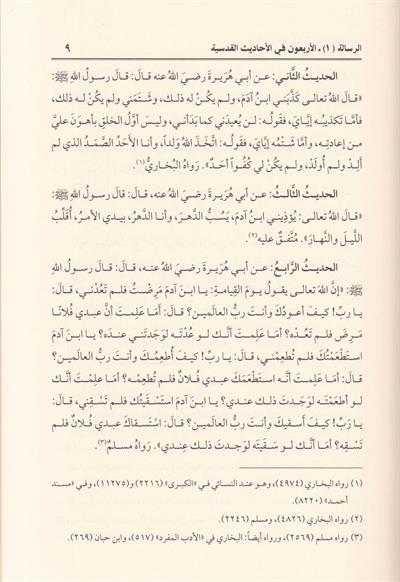 الرسالة (١) ـ الأربعون في الأحاديث القدسية ٩
الحديث الثَّاني: عن أبي هُرَيرةَ رضيَ اللهُ عنه قالَ: قالَ رسولُ اللهِ ﷺ:
«قالَ اللهُ تعالى كَذَّبَني ابنُ آدمَ، ولم يكُنْ له ذلك، وشَتَمَني ولم يكُنْ له ذلك،
فأمَّا تكذيبُه إيَّايَ، فقولُه: لن يُعيدَني كما بَدَأَني، وليسَ أوَّلُ الخلقِ بأهوَنَ عليَّ
من إعادتِه، وأمَّا شَتْمُه إيَّايَ، فقولُه: اتَّخذَ اللهُ وَلداً، وأنا الأحَدُ الصَّمدُ الذي لم
أَلِدْ ولم أُولَدْ، ولم يكُنْ لي كُفُواً أحدٌ». رَواهُ البُخاريُّ(١).
الحديث الثَّالث: عن أبي هُرَيرةَ رَضيَ اللهُ عنه، قالَ: قالَ رسولُ اللهِ ﷺ:
«قالَ اللهُ تعالى: يُؤذِيني ابنُ آدمَ، يَسُبُّ الدَّهرَ، وأنا الدَّهرُ، بيدي الأمرُ، أُقلِّبُ
اللَّيلَ والنَّهارَ». مُتَّفَقٌ عليه(٢).
الحديث الرَّابع: عن أبي هُرَيرةَ رَضيَ اللهُ عنه، قالَ: قالَ رسولُ اللهِ
ﷺ: «إنَّ اللهَ تعالى يقولُ يومَ القِيامةِ: يا ابنَ آدمَ مَرِضْتُ فلم تَعُدْني، قالَ:
يا ربِّ! كيفَ أعودُكَ وأنتَ ربُّ العالَمينَ؟ قالَ: أمَا عَلِمتَ أنَّ عبدي فُلاناً
مَرِضَ فلم تَعُدْه؟ أمَا عَلِمتَ أنَّك لو عُدْتَه لوَجَدتَني عندَه؟ يا ابنَ آدمَ
استَطْعَمْتُكَ فلم تُطعِمْني، قالَ: يا ربِّ! كيفَ أُطعِمُكَ وأنتَ ربُّ العالَمينَ؟
قالَ: أمَا عَلِمتَ أنَّه استَطْعَمَكَ عبدي فُلانٌ فلم تُطعِمْه؟ أمَا عَلِمتَ أنَّك لو
أطعَمْتَه لوَجَدتَ ذلك عِندي؟ يا ابنَ آدمَ استَسْقَيتُك فلم تَسْقِني، قالَ:
يا رَبِّ! كيفَ أَسقيكَ وأنتَ ربُّ العالَمينَ؟ قالَ: استَسقاكَ عبدي فُلانٌ فلم
تَسْقِه؟ أمَا أنَّك لو سَقَيتَه لوَجدتَ ذلك عِندي». رَواهُ مسلمٌ(٣).
(١) رواه البخاري (٤٩٧٤)، وهو عند النسائي في «الكبرى» (٢٢١٦) و(١١٢٧٥)، وفي «مسند
أحمد» (٨٢٢٠).
(٢) رواه البخاري (٤٨٢٦)، ومسلم (٢٢٤٦).
(٣) رواه مسلم (٢٥٦٩)، ورواه أيضاً: البخاري في «الأدب المفرد» (٥١٧)، وابن حبان (٢٦٩).